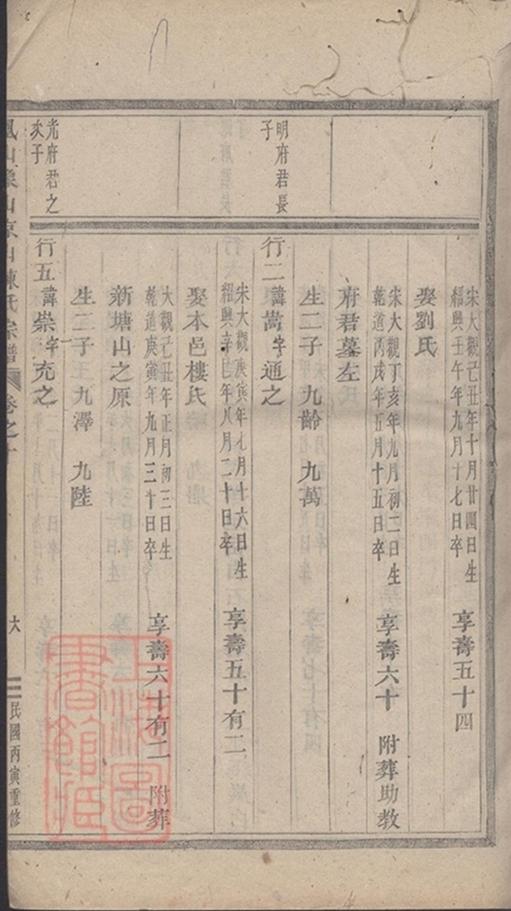 宋大觀己丑年十月廿四日生
紹興壬午年九月十七日卒
享壽五十四
娶劉氏
宋大觀丁亥年九月初二日生
乾道丙戌年五月十五日卒
享壽六十 附葬助教
府君墓左
生二子 九齡 九萬
明府君長
子
行二諱嵩字通之
宋大觀庚寅年七月十六日生
紹興辛巳年八月二十日卒
享壽五十有二
娶本邑樓氏
大觀己丑年正月初三日生
乾道庚寅年九月三十日卒
享壽六十有二 附葬
新塘山之原
生二子 九澤 九陸
光府君之
次子
行五諱崇字充之
陳氏宗譜
卷之
六
民國丙寅重修